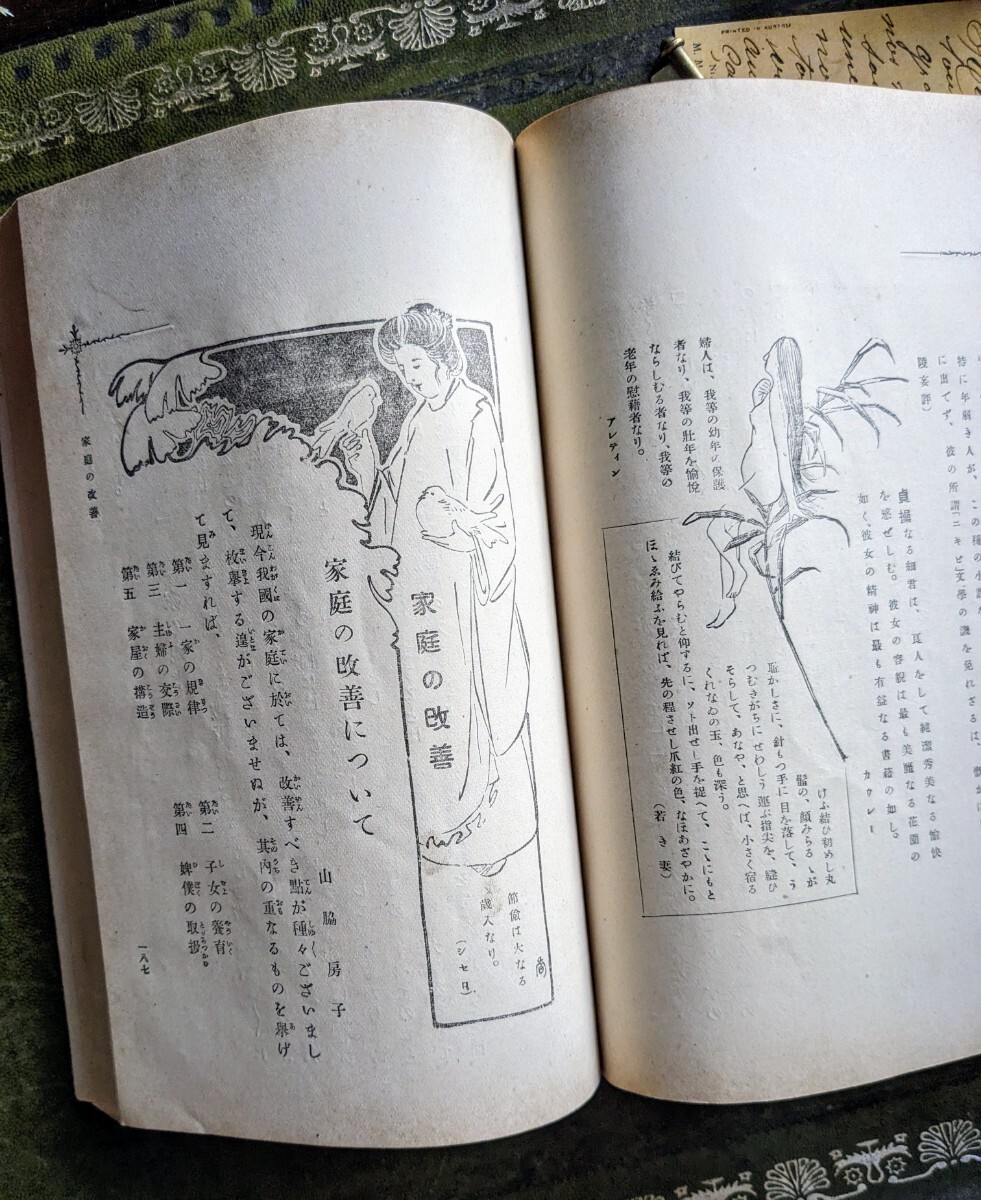 特に年弱き人が、この種の小説
に出でず、彼の所謂「ニキビ」文學の譏を免れざるは、
陵妄評）
貞操なる細君は、良人をして純潔秀美なる愉快
を感ぜしむ。彼女の容貌は最も美麗なる花園の
如く、彼女の精神は最も有益なる書籍の如し。
カウレー
婦人は、我等の幼年の保護
者なり、我等の壯年を愉悅
ならしむる者なり、我等の
老年の慰藉者なり。
アレティン
けふ結ひ初めし丸
髷の、顏みらるゝが
恥かしさに、針もつ手に目を落して、う
つむきがちにせわしう運ぶ指尖を、縫ひ
そらして、あなや、と思へば、小さく宿る
くれなゐの玉、色も深う。
結びてやらむと仰するに、ソト出せし手を捉へて、こゝにもと
ほゝゑみ給ふを見れば、先の程させし爪紅の色、なほあざやかに。
（若き妻）
家庭の改善
節儉は大なる
歲入なり。
（シセロ）
家庭の改善について
山脇房子
現今我國の家庭に於ては、改善すべき點が種々ございまし
て、枚擧する遑がございませぬが、其內の重なるものを擧げ
て見ますれば、
第一 一家の規律
第二 子女の養育
第三 主婦の交際
第四 婢僕の取扱
第五 家屋の構造
家庭の改善
一八七